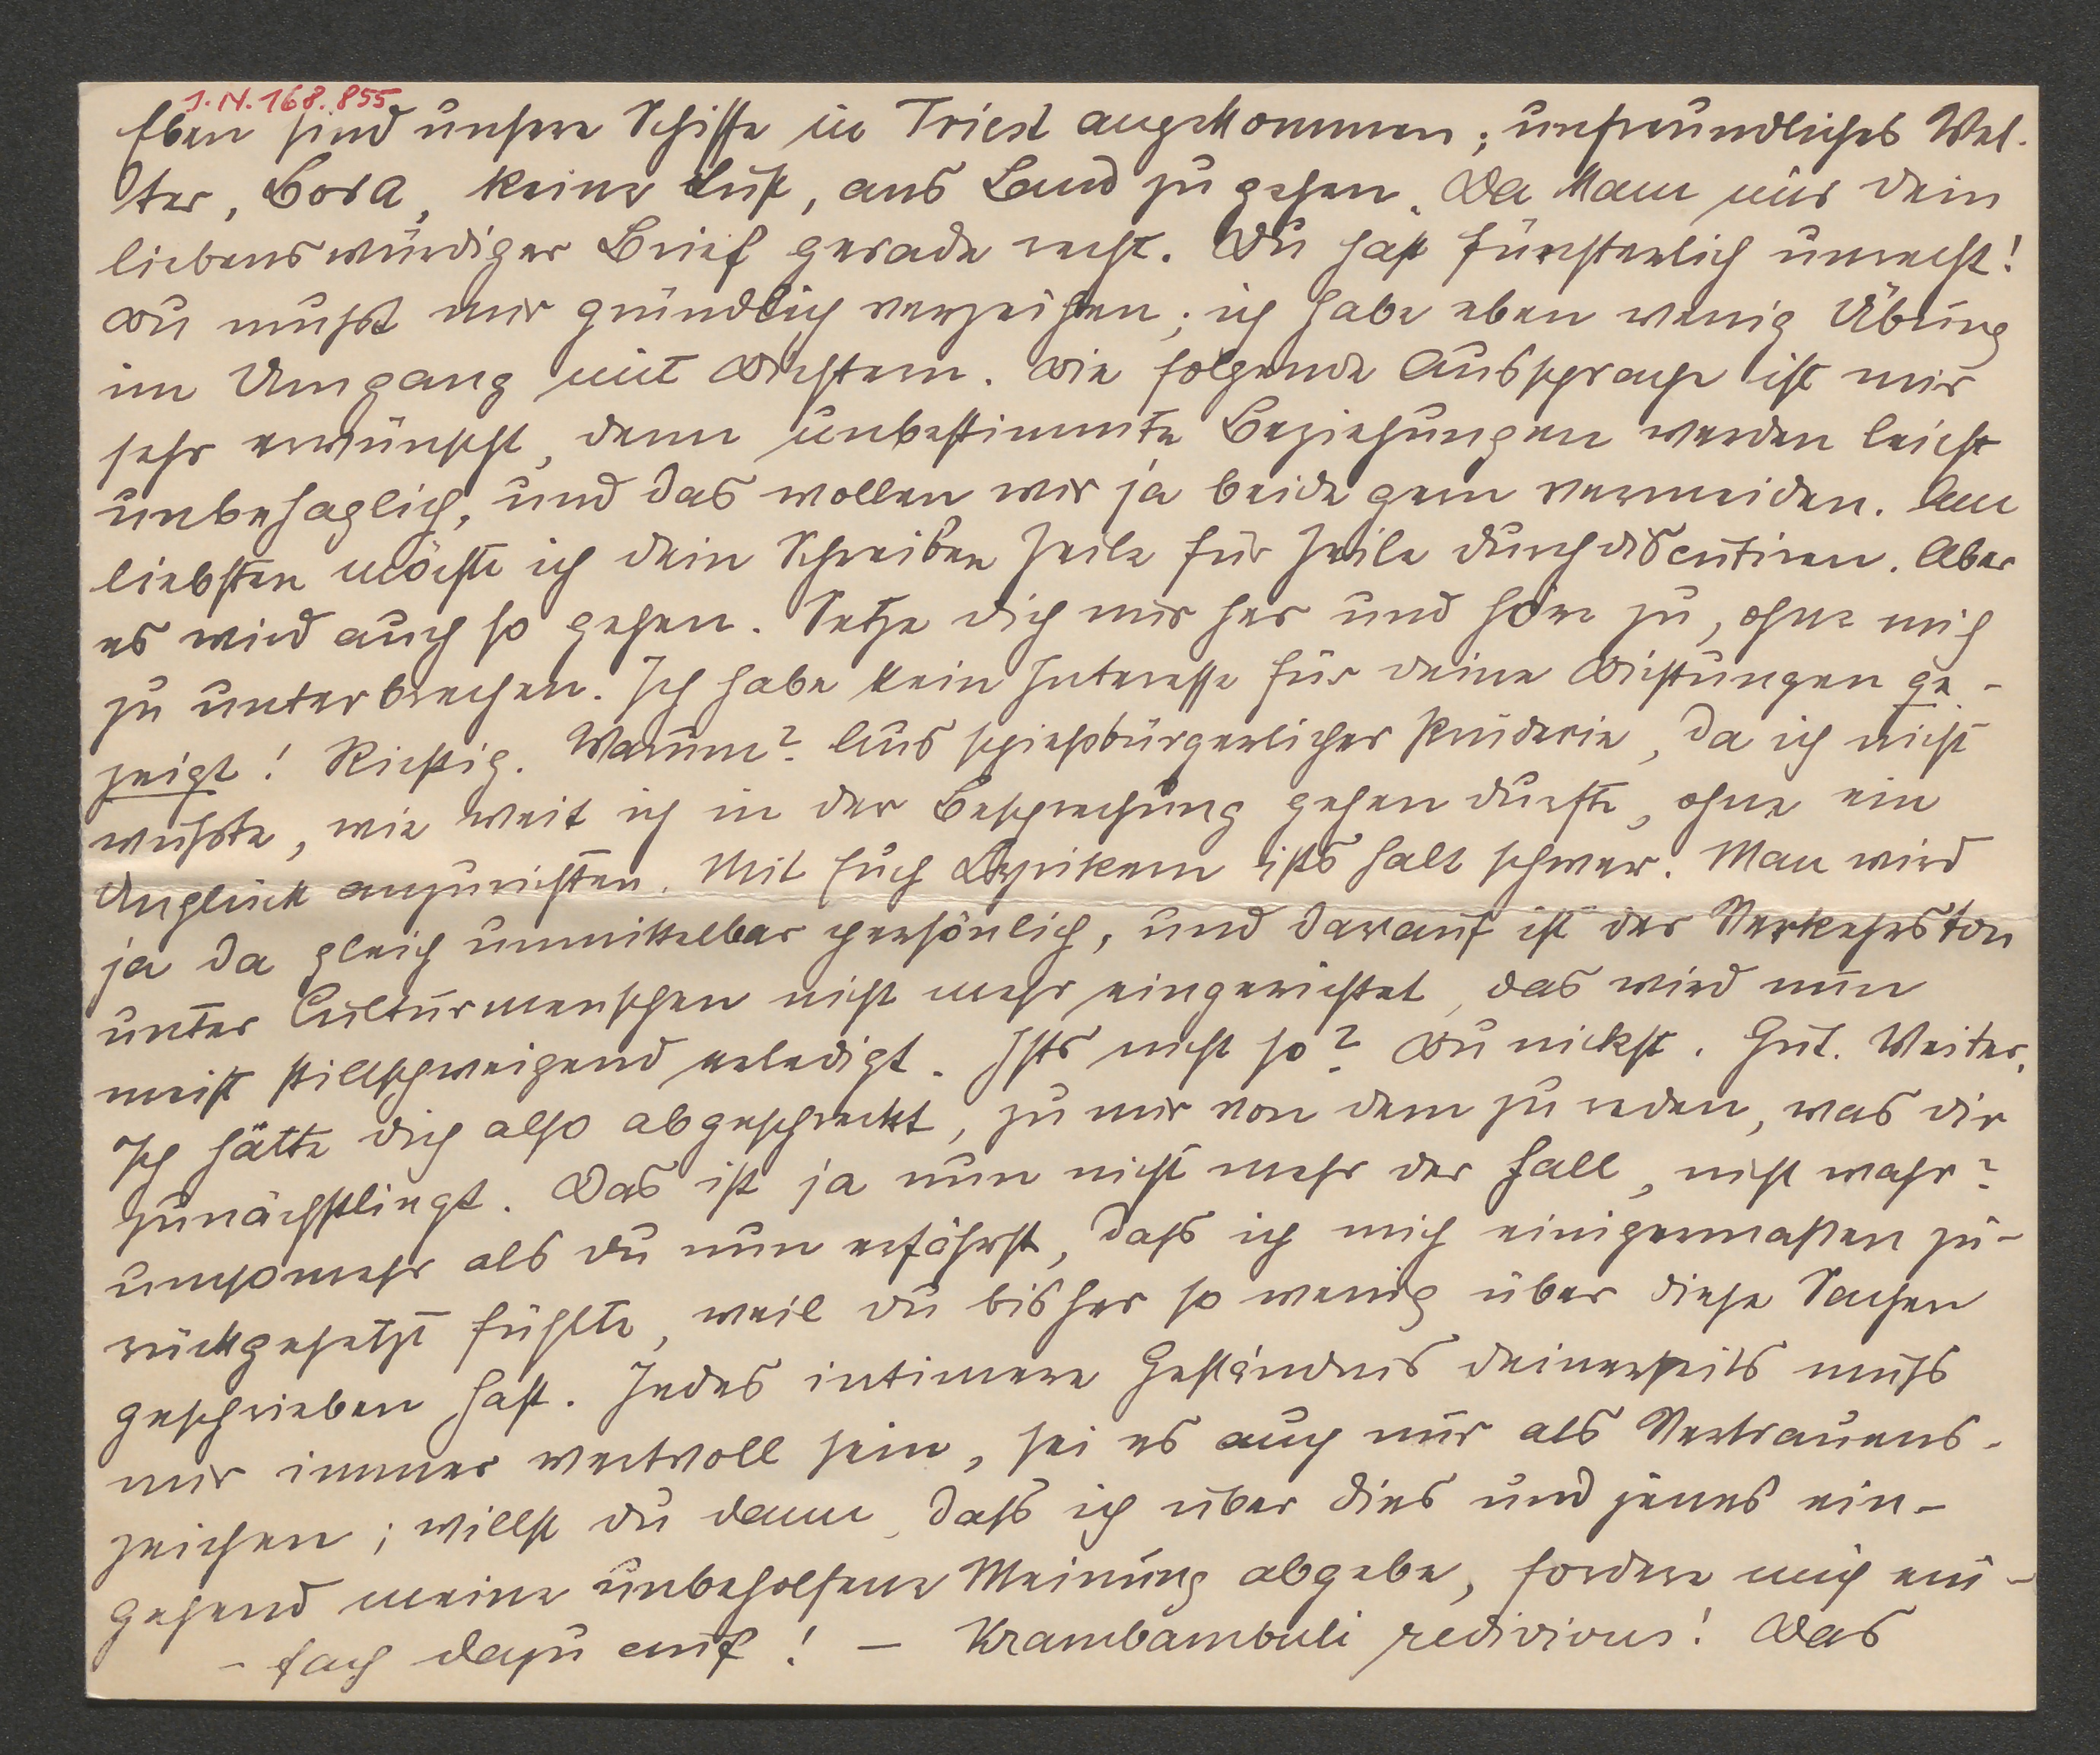 J.N. 168.855
Eben sind unsere Schiffe in Triest angekommen; unfreundliches Wet-
ter, Bora, keine Lust, ans Land zu gehen. Da kam mir dein
liebenswürdiger Brief gerade recht. Du hast fürchterlich unrecht!
Du mußt mir gründlich verzeihen; ich habe eben wenig Übung
im Umgang mit Dichtern. Die folgende Aussprache ist mir
sehr erwünscht, denn unbestimmte Beziehungen werden leicht
unbehaglich, und das wollen wir ja beide gern vermeiden. Am
liebsten möchte ich dein Schreiben Zeile für Zeile durchdiscutiren. Aber
es wird auch so gehen. Setze dich mir her und höre zu, ohne mich
zu unterbrechen. Ich habe kein Interesse für deine Dichtungen ge-
zeigt! Richtig. Warum? Aus spießbürgerlicher Prüderie, da ich nicht
wußte, wie weit ich in der Besprechung gehen durfte, ohne ein
Unglück anzurichten. Mit Euch Lyrikern ists halt schwer. Man wird
ja da gleich unmittelbar persönlich, und darauf ist der Verkehrston
unter Culturmenschen nicht mehr eingerichtet, das wird nun
meist stillschweigend erledigt. Ists nicht so? Du nickst. Gut. Weiter.
Ich hätte dich also abgeschreckt, zu mir von dem zu reden, was dir
zunächstliegt. Das ist ja nun nicht mehr der Fall, nicht wahr?
umsomehr als du nun erfährst, daß ich mich einigermaßen zu-
rückgesetzt fühlte, weil du bisher so wenig über diese Sachen
geschrieben hast. Jedes intimere Geständnis deinerseits muß
mir immer wertvoll sein, sei es auch nur als Vertrauens-
zeichen; willst du dann, daß ich über dies und jenes ein-
gehend meine unbeholfene Meinung abgebe, fordere mich ein-
- fach dazu auf! — Krambambuli redivivus! Das